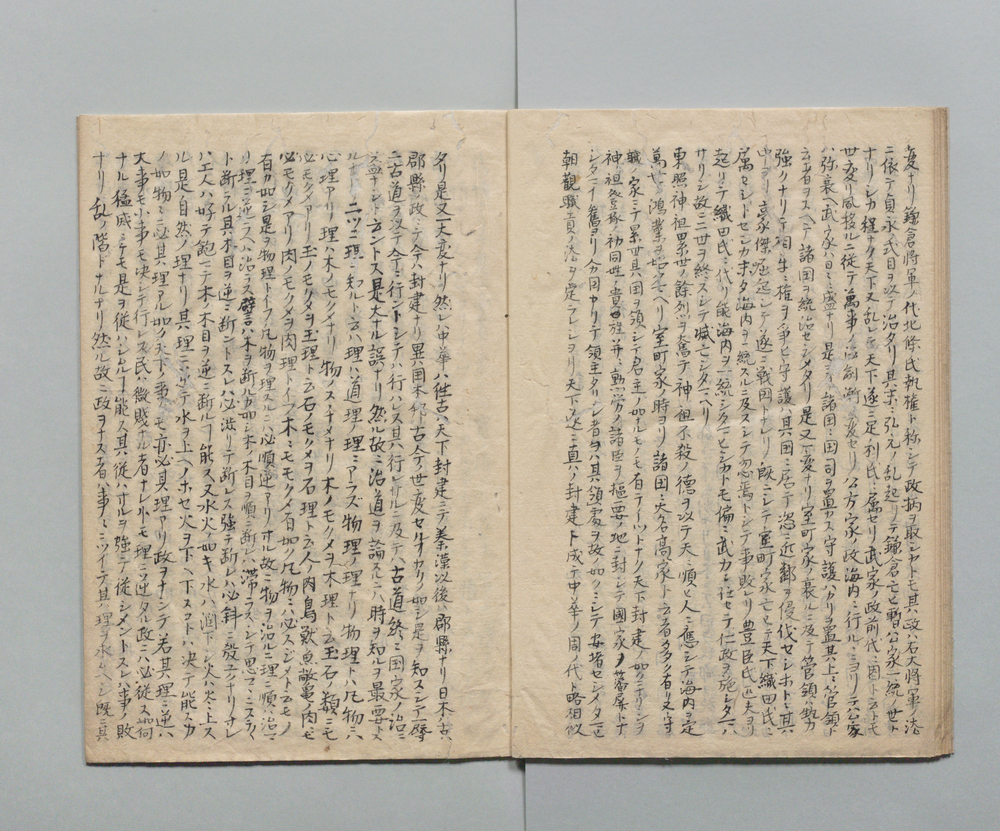 変ナリ鎌倉将軍ノ代北條氏執権ト称シテ政柄ヲ取シカトモ其政ハ右大将軍ノ法
ニ依テ貞永式目ヲ以テ治タリ其末ニ弘元ノ乱起リテ鎌倉亡ヒ暫ク公家一統ノ世ト
ナリシカ程ナク天下又乱レテ天下遂ニ足利氏ニ属セリ武家ノ政前代ニ因ト云トモ
世変リ風移ルニ従テ萬事ノ
ハ弥衰ヘ武家ハ日ニ盛ナリ是ヨリ諸国ニ国司ヲ置ス守護ハカリヲ置其上ニ管領ト
云者ヲスヘテ諸国ヲ統治セシメタリ是又一変ナリ室町家ノ衰ルニ及テ管領ノ勢力
強クナリテ相互ニ権ヲ争ヒ守護ハ其国ニ居テ恣ニ近鄰ヲ侵伐セシホトニ其
中ヨリ豪傑崛起シテ遂ニ戦国トナレリ既ニシテ室町家亡ヒテ天下織田氏ニ
属セントセシカ未タ海内ヲ一統スルニ及スシテ忽焉トシテ事敗レリ豊臣氏匹夫ヨリ
起リテ織田氏ニ代リ能海内ヲ一統シタマヒシカトモ偏ニ武力ニ任セテ仁政ヲ施シタマハ
サリシ故ニ二世ヲ終スシテ滅亡シタマヘリ
東照神祖累世ノ餘烈ヲ奮テ神祖不殺ノ徳ヲ以テ天ニ順ヒ人ニ應シテ海内ヲ定
萬世ノ鴻業ヲ始タマヘリ室町家ノ時ヨリ諸国ニ大名高家ト云者多クアル者ハ又守
職ノ家ニテ累世其国ヲ領シテ君主ノ如ナルモノモ有テイツトナク天下封建ノ如クニナリシヲ
神祖登極ノ初同姓ノ貴族并ニ勲労ノ諸臣ヲ樞要ノ地ニ封シテ國家ノ藩屏トナ
シタマヒテ舊ヨリ分国ヲナリテ領主タリシ者ヲハ其領處ヲ故ノ如クニシテ安堵セシメタマヒ
朝覲職貢ノ法ヲ定ラレシヨリ天下遂ニ直ノ封建ト成テ中華ノ周ノ代ト略相似
タリ是又一大変ナリ然レハ中華ハ往古ハ天下封建ニテ秦漢以後ハ郡縣ナリ日本ハ古ハ
郡縣ノ政ニテ今ハ封建ナリ異国本邦古今ノ世変セルサカリ如シ是ヲ知スシテ一槩
ニ古道ヲ以テ今ニ行ントシテハ行ハレス其行レサルニ及テハ古道然ニ国家ノ治ニ
益ナシト云ントス是大ナル誤ナリ然ル故ニ治道ヲ論スルニハ時ヲ知ルヲ最要トス
ルナリ 二ツニ理ニ知ルト云ハ理ハ道理ノ理ニアラズ物理ノ理ナリ物理トハ凡物ニハ
必理アリ理ハ木ノモクメナリ物ノスチメナリ木ノモクメヲ木理ト云玉石ノ類ニモ
必モクメアリ玉ノモクメヲ玉理ト云石ノモクメヲ石理ト云人ノ肉鳥獣魚敝ノ肉ニモ
必モクメアリ肉ノモクメヲ肉理トイフ木ニモモクメ有如ク凡物ニハ必スシメト云モノ
有カ如シ是ヲ物理トイフ凡物ヲ理スルニハ必順逆アリサル故ニ物ヲ治ルニ理ニ順ヘハ治マ
リ理ニ逆ラヘハ治ラス譬ハ木ヲ断ルカ如シ木ノ木目ヲ順ニ断レハ滞ラスシテ思フマニスク
ト断ラル其木目ヲ逆ニ断ントスレハ必渋リテ断レス強テ断レハ必斜ニ成モクナリサレ
ハ工人ハ好テ鉋ニテ木ノ木目ヲ逆ニ断ルフ能ス又水火ノ如キ水ハ潤下シ火ハ炎上ス
ル是其自然ノ理ナリ其理ニ逆テ水ヲ上ヘノホセ火ヲ下ヘ下スコトハ決テ能スカ
ノ如物ニ必其理アル如ク天下ノ事ニモ亦必其理アリ政ヲナシテ若其理ニ逆ヘハ
大事モ小事モ決シテ行レス民ハ微賤ナル者ナレトモ理ニ逆タル政ニハ必従ス如何
ナル猛威ニテモ是ヲ従ハシムルフ能ス其従ハサルヲ強テ従シメントスレハ事ノ敗
ナリ乱ノ階トナルナリ然ル故ニ政ヲナス者ハ事々ニツイテ其理ヲ求ムヘシ既ニ其